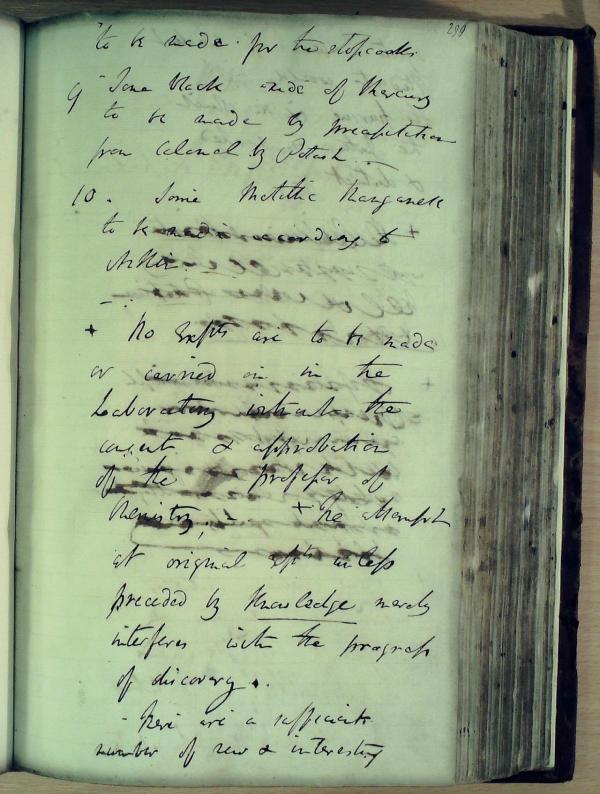 299
to be made for the stopcocks.
9 Some black oxide of Mercury
to be made by precipitation
from Calomel by Potash
10. Some Metallic Manganese
to be made according to
+ No Expts are to be made
or carried on in the
Laboratory without the
consent & approbation
of the professor of
Chemistry. + The attempt
at original expts unless
preceded by Knowledge merely
interferes with the progress
of discovery.
- There are a sufficient
number of new & interesting